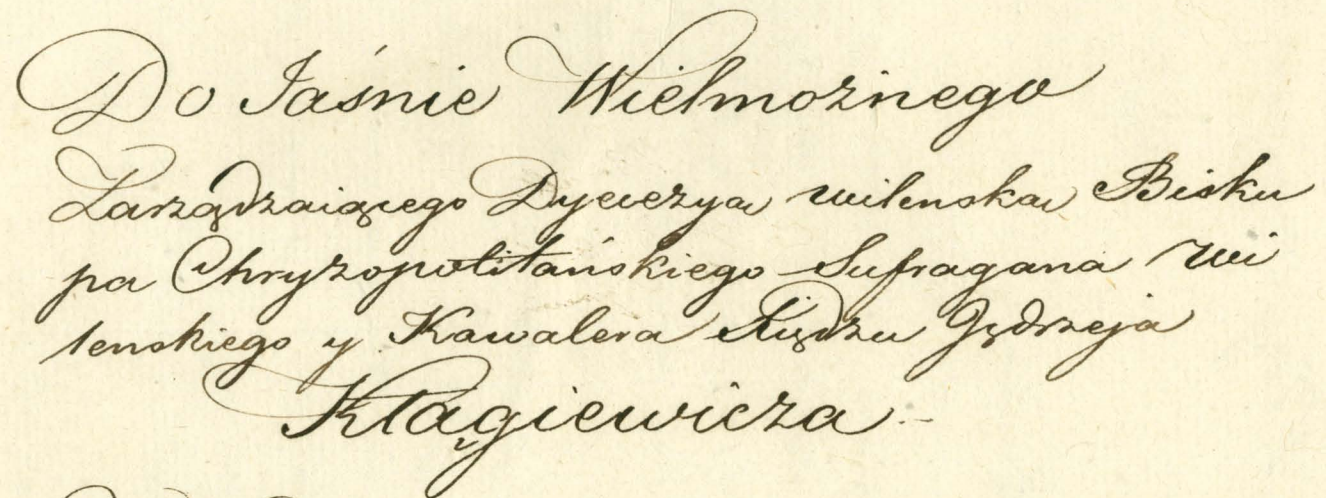 Do Jaśnie Wielmożnego
Zarządzaiącego Dyecezya wilenska Bisku
pa Chryzopolitańskiego Sufragana Wi
lenskiego y Kawalera Xiędza Jędrzeja
Kłągiewicza